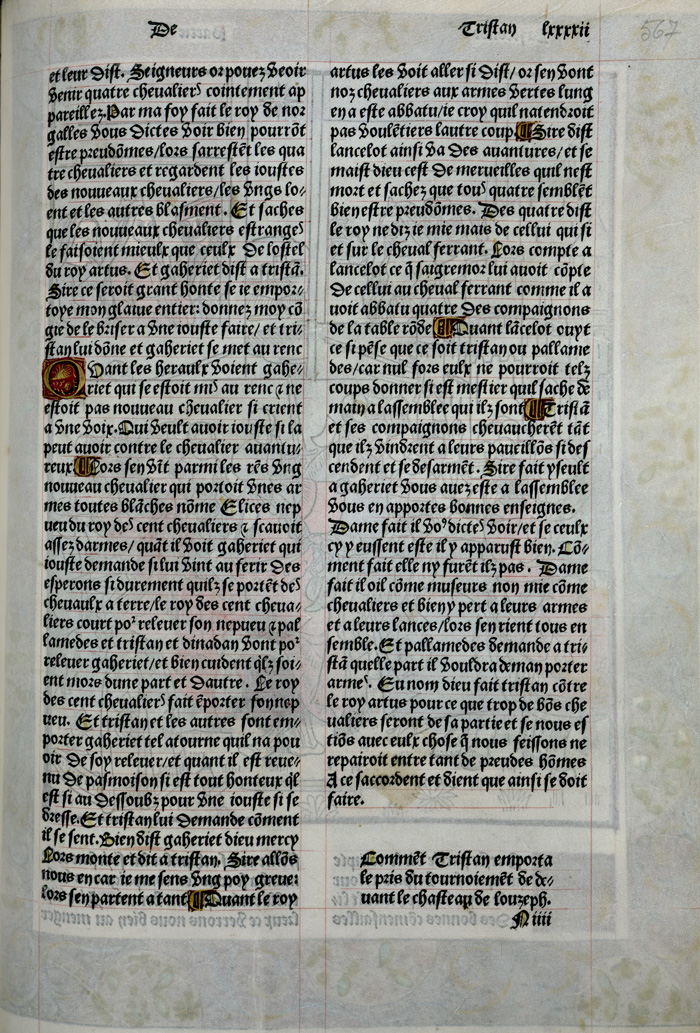 De
Tristan lxxxxii
567
et leur dist. Seigneurs or pouez veoir
venir quatre cheualiers cointement ap
pareillez. Par ma foy fait le roy de nor
galles vous dictes voir bien pourrōt
estre preudōmes/lors sarrestēt les qua
tre cheualiers et regardent les ioustes
des nouueaux cheualiers/les vngs lo-
ent et les autres blasment. Et saches
que les nouueaux cheualiers estranges
le faisoient mieulx que ceulx De lostel
du roy artus. Et gaheriet dist a tristā.
Sire ce seroit grant honte se ie empor-
toye mon glaiue entier: donnez moy cō
gie de le briser a vne iouste faire/ et tri-
stan lui dōne et gaheriet se met au renc
Quant les heraulx voient gahe-
riet qui se estoit mis au renc ꝛ ne
estoit pas nouueau cheualier si crient
a vne voix. Qui veult auoir iouste si la
peut auoir contre le cheualier auantu-
reux ¶ Lors sen vīt parmi les rēs vng
nouueau cheualier qui portoit vnes ar
mes toutes blāches nōme Elices nep
ueu du roy des cent cheualiers ꝛ scauoit
assez darmes/ quāt il voit gaheriet qui
iouste demande si lui vint au ferir des
esperons si durement quilz se portēt des
cheuaulx a terre/le roy des cent cheua-
liers court por releuer son nepueu ꝛ pal
lamedes et tristan et dinadan vont por
releuer gaheriet/et bien cuident qlz soi-
ent mors dune part et dautre. Le roy
des cent cheualiers fait ēporter son nep
ueu. Et tristan et les autres sont em-
porter gaheriet tel atourne quil na pou
oir De soy releuer/et quant il est reue-
nu de pasmoison si est tout honteux ql
est si au dessoubz pour vne iouste si se
dresse. Et tristan lui demande cōment
il se sent. Bien dist gaheriet dieu mercy
Lors monte et dit a tristan. Sire allōs
nous en car ie me sens vng poy greue:
lors sen partent a tant ¶ Quant le roy
artus les voit aller si dist/ or sen vont
noz cheualiers aux armes vertes lung
en a este abbatu/ie croy quil natendroit
pas voulētiers lautre coup. ¶ Sire dist
lancelot ainsi va des auantures/ et se
maist dieu cest De merueilles quil nest
mort et sachez que tous quatre semblēt
bien estre preudōmes. Des quatre dist
le roy ne diz ie mie mais de cellui qui si
et sur le cheual ferrant. Lors compte a
lancelot ce q̄ saigremor lui auoit cōpte
De cellui au cheual ferrant comme il a
uoit abbatu quatre Des compaignons
de la table rōde ¶ Quant lācelot ouyt
ce si pēse que ce soit tristan ou pallame
des/car nul fors eulx ne pourroit telz
coups donner si est mestier quil sache de
main a lassemblee qui ilz sont ¶ Tristā
et ses compaignons cheuaucherēt tāt
que ilz vindrent a leurs paueillōs si des
cendent et se desarmēt. Sire fait yseult
a gaheriet vous auez este a lassemblee
vous en apportes bonnes enseignes.
Dame fait il vo9 dictes voir/et se ceulx
cy y eussent este il y apparust bien. Cō-
ment fait elle ny furēt ilz pas. Dame
fait il oil cōme museurs non mie cōme
cheualiers et bien y pert a leurs armes
et a leurs lances/lors sen rient tous en
semble. Et pallamedes demande a tri-
stā quelle part il vouldra deman porter
armes. Eu nom dieu fait tristan cōtre
le roy artus pour ce que trop de bōs che
ualiers seront de sa partie et se nous es
tiōs auec eulx chose q̄ nous feissons ne
repairoit entre tant de preudes hōmes
A ce saccordent et dient que ainsi se doit
faire.
Commēt Tristan emporta
le pris du tournoiemēt de de-
uant le chasteau de louzeph.
N iiii